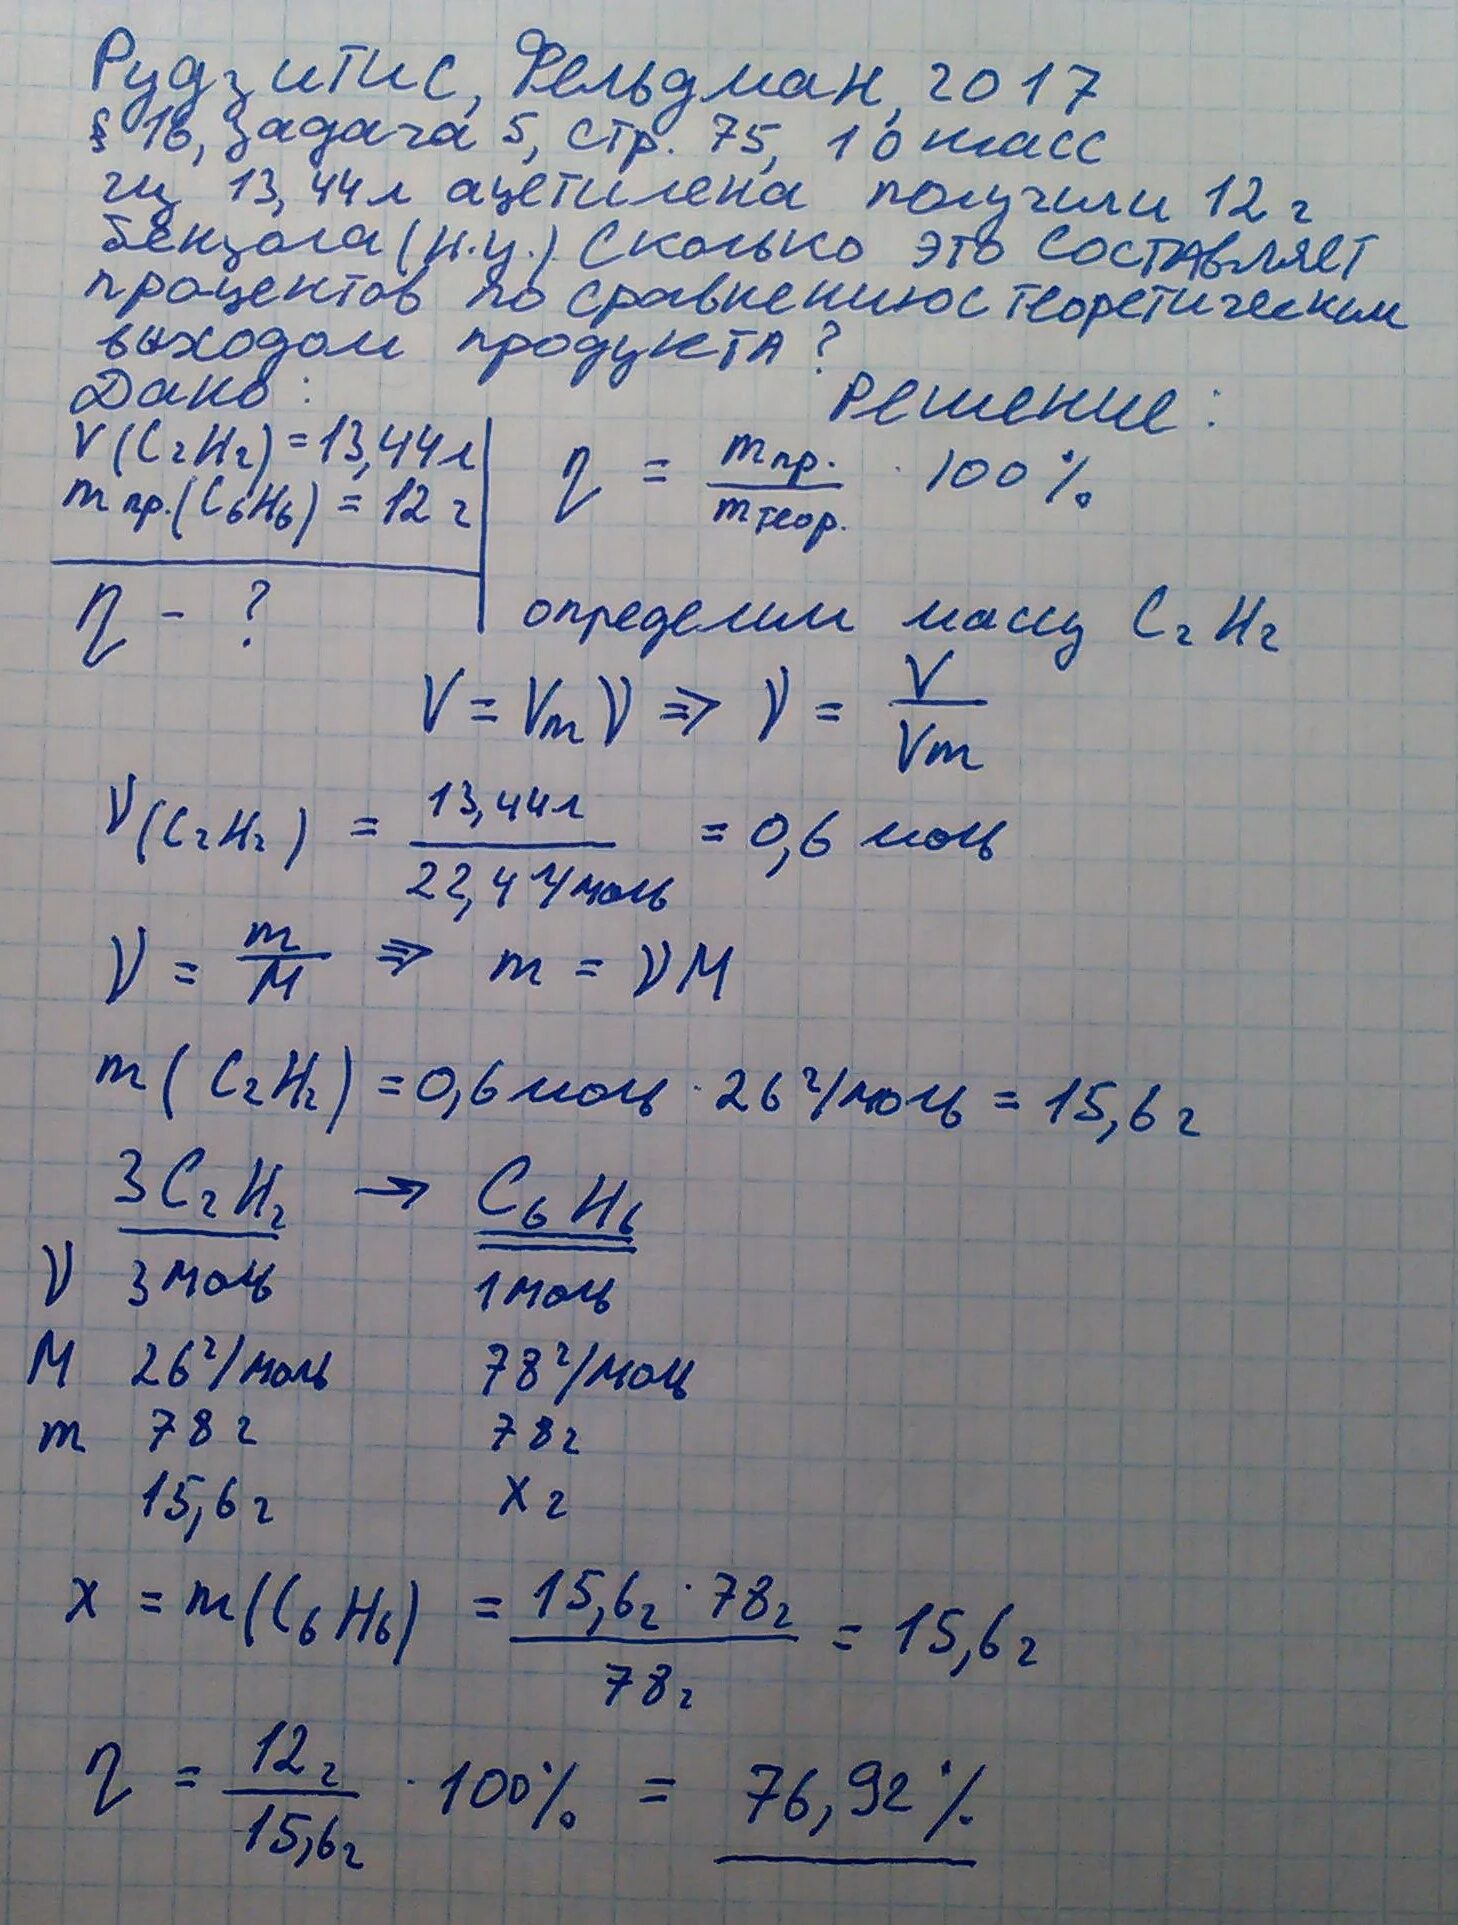 Рудзитис, Фельдман, 2017
§ 16, задача 5, стр. 75, 10 класс
Из 13,44л ацетилена получили 12 г
бензола (н.у.) Сколько это составляет
процентов по сравнению с теоретическим
выходом продукта?
Дано: Решение:
V(C₂H₂) = 13,44л
m пр.(C₆H₆) = 12 г
η = m пр. / m теор. · 100 %
η - ?
определим массу C₂H₂
V = Vm ν ⇒ ν = V / Vm
ν(C₂H₂) = 13,44л / 22,4 л/моль = 0,6 моль
ν = m / M ⇒ m = νM
m(C₂H₂) = 0,6 моль · 26 г/моль = 15,6 г
3C₂H₂ → C₆H₆
ν 3 моль 1 моль
M 26 г/моль 78 г/моль
m 78 г 78 г
15,6 г x г
x = m(C₆H₆) = 15,6 г · 78 г / 78 г = 15,6 г
η = 12 г / 15,6 г · 100% = 76,92 %